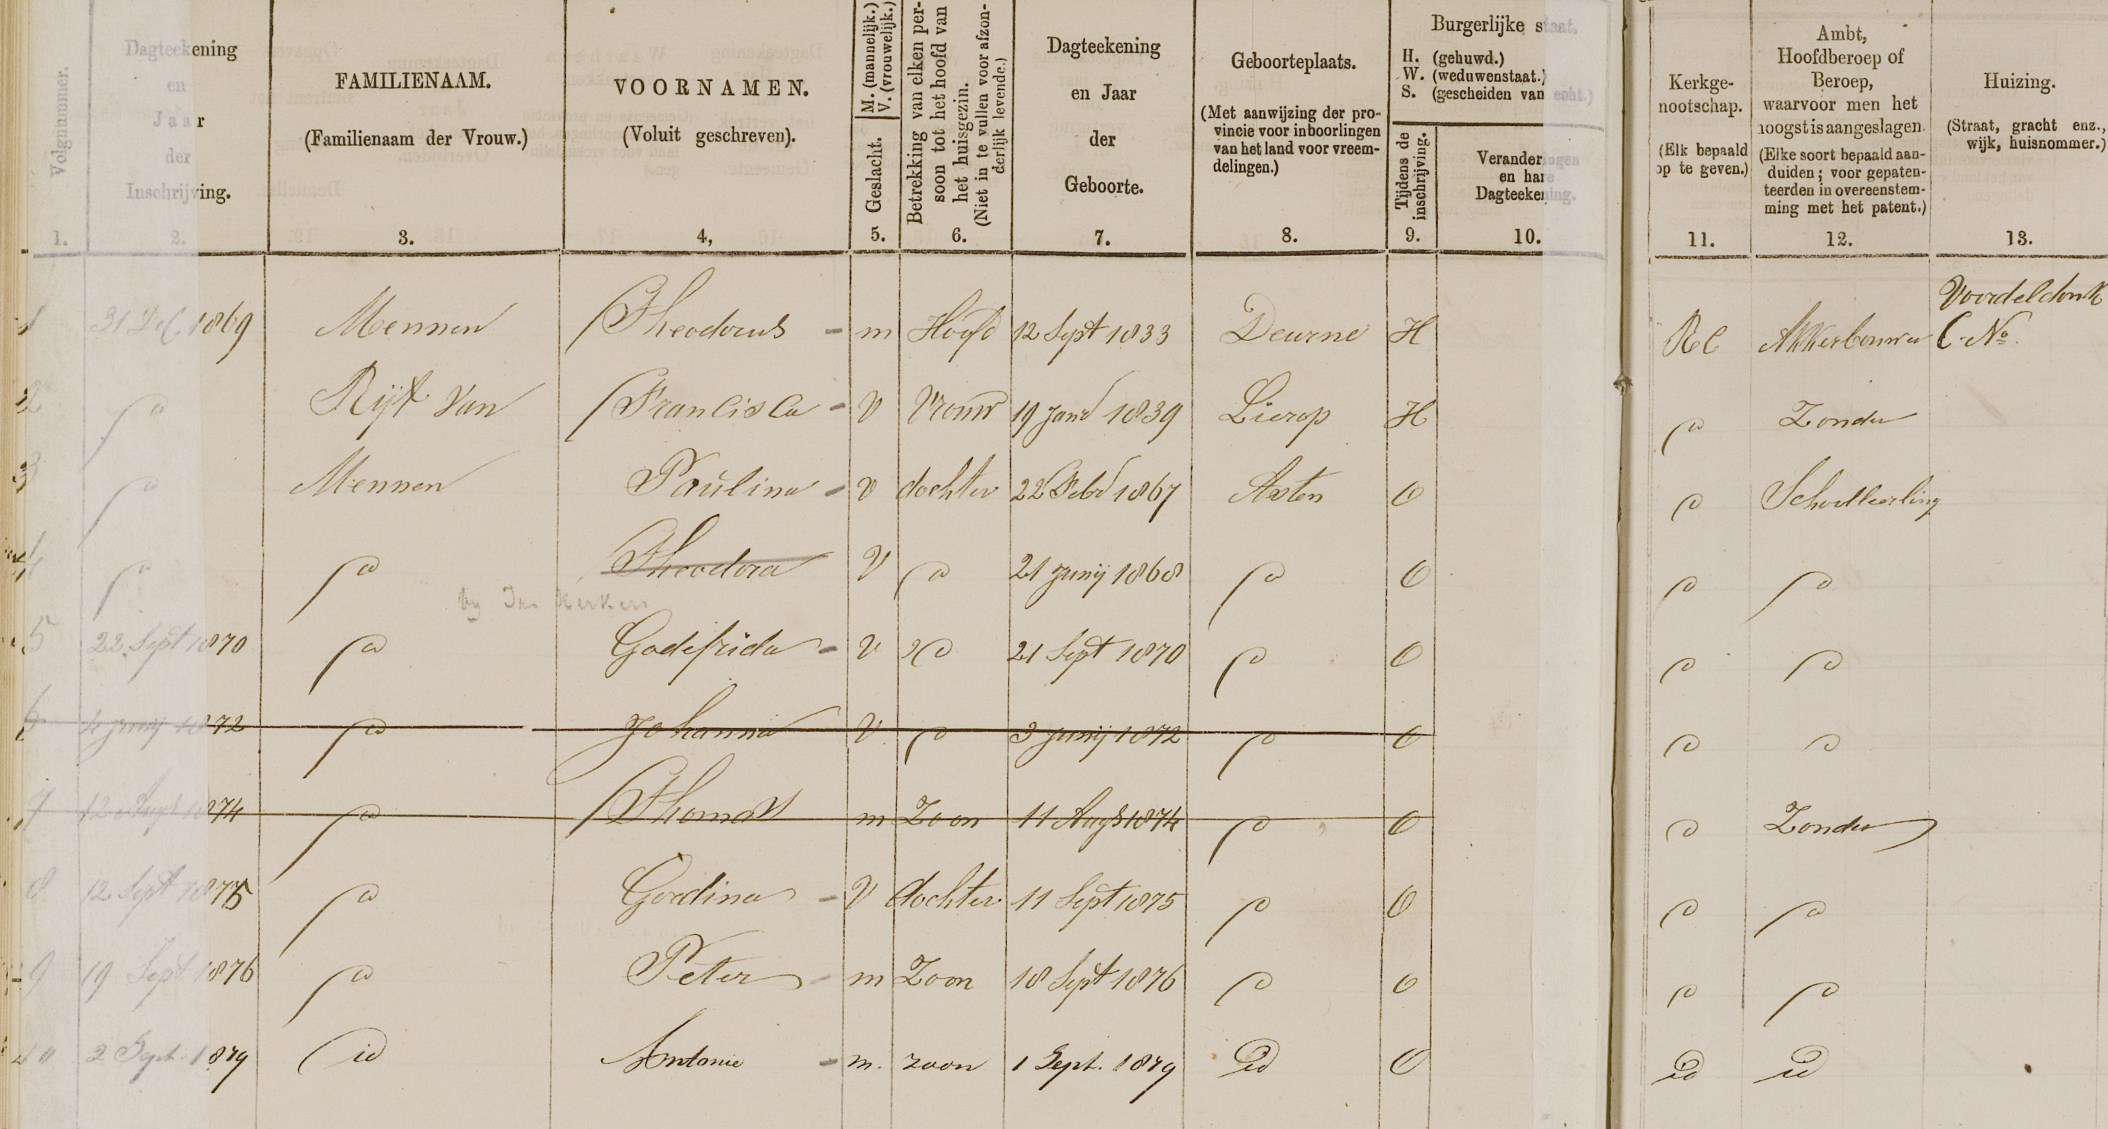 Volgnummer.
1.
Dagteekening
en
Jaar
der
Inschrijving.
2.
FAMILIENAAM.
(Familienaam der Vrouw.)
3.
VOORNAMEN.
(Voluit geschreven).
4,
Geslacht. M. (mannelijk.) V. (vrouwelijk.)
5.
Betrekking van elken per-
soon tot het hoofd van
het huisgezin.
(Niet in te vullen voor afzon-
derlijk levende.)
6.
Dagteekening
en Jaar
der
Geboorte.
7.
Geboorteplaats.
(Met aanwijzing der pro-
vincie voor inboorlingen
van het land voor vreem-
delingen.)
8.
Burgerlijke staat.
H. (gehuwd.)
W. (weduwenstaat.)
S. (gescheiden van echt.)
Tijdens de
inschrijving.
9.
Verander
en har
Dagteeke
10.
Kerkge-
nootschap.
(Elk bepaald
op te geven.)
11.
Ambt,
Hoofdberoep of
Beroep,
waarvoor men het
hoogst is aangeslagen.
(Elke soort bepaald aan-
duiden; voor gepaten-
teerden in overeenstem-
ming met het patent.)
12.
Huizing.
(Straat, gracht enz.,
wijk, huisnommer.)
13.
Voordeldonk
1 31 Dec 1869 Mennen Theodorus - m Hoofd 12 Sept 1833 Deurne H RC Akkerbouwer C. No.
2 Rijt Van Francisca - V Vrouw 19 Jan 1839 Lierop H Zonder
3 Mennen Paulina - V dochter 22 Feb 1867 Asten O Schoolleerling
4 Theodora V 21 Junij 1868 O
by Jan Kerkers
5 22 Sept 1870 Godefrida - V 21 Sept 1870 O
6 4 Junij 1872 Johanna V 3 Junij 1872 O
7 12 Aug 1874 Thomas m Zoon 11 Augs 1874 O Zonder
8 12 Sept 1875 Gordina - V dochter 11 Sept 1875 O
9 19 Sept 1876 Peter - m Zoon 18 Sept 1876 O
10 2 Sept. 1879 id Antonie - m. zoon 1 Sept. 1879 id O id id